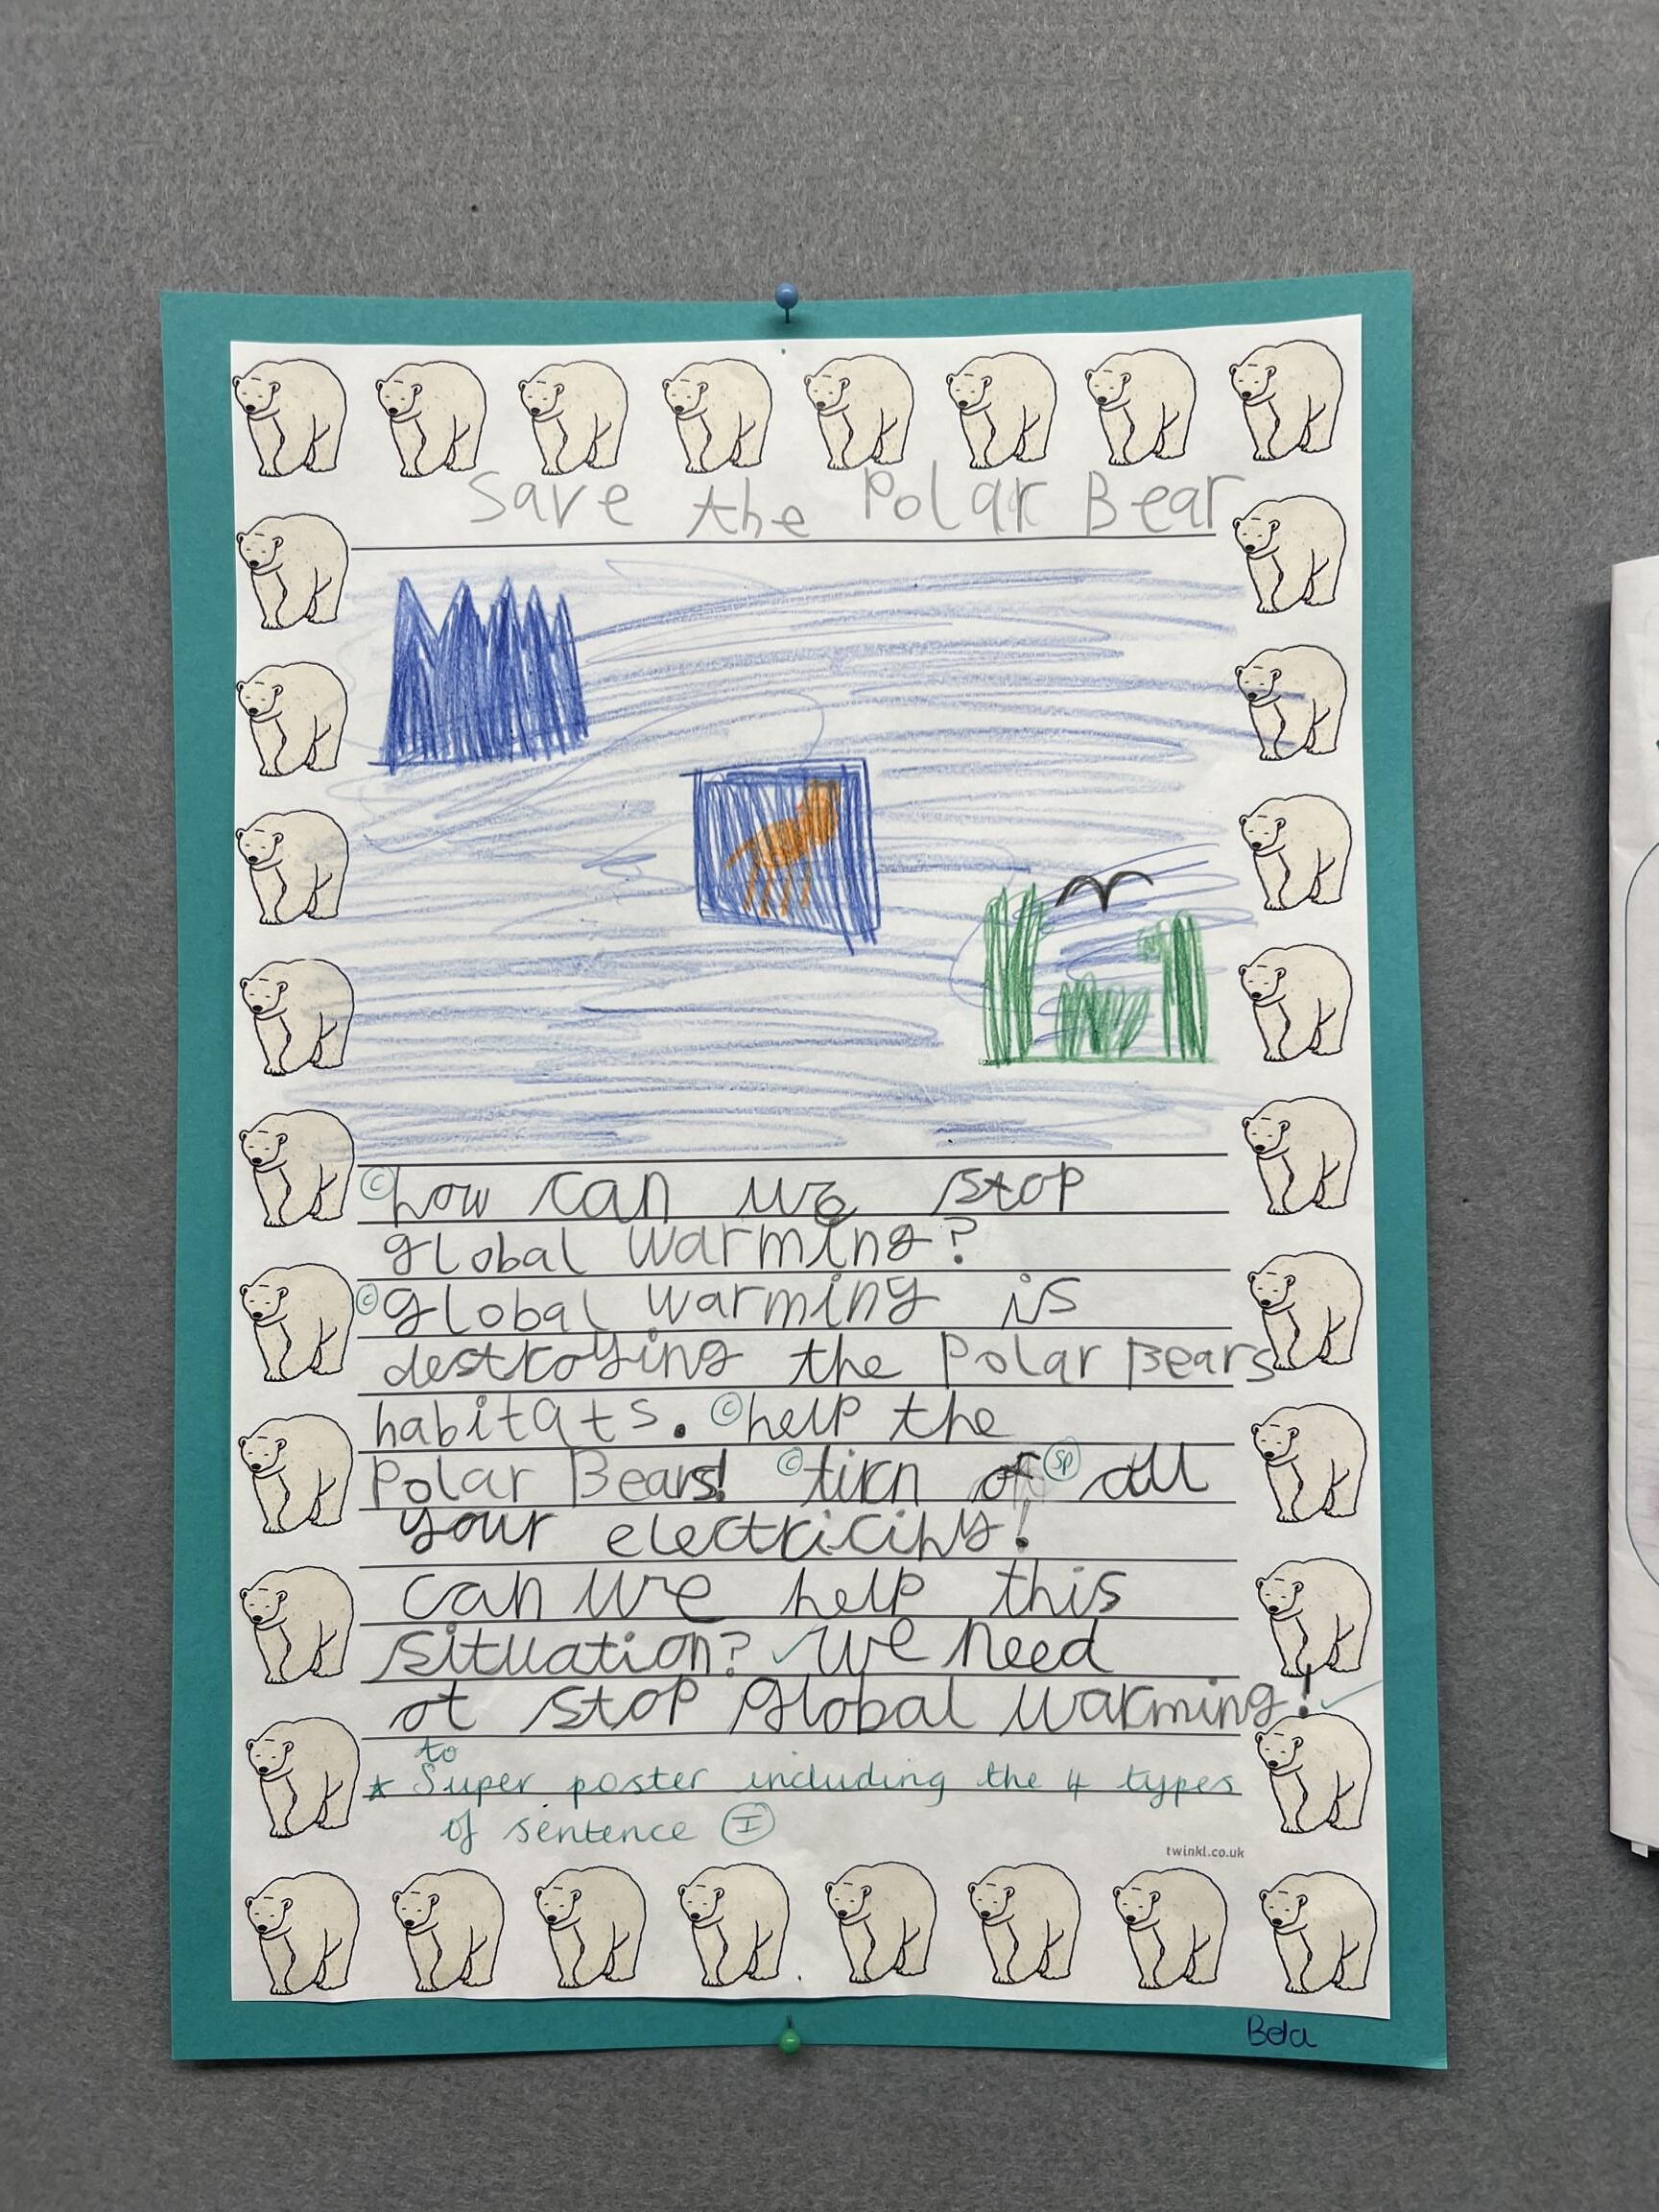 Save the Polar Bear
© how can we stop
global warming?
© global warming is
destroying the Polar Bears
habitats. © help the
Polar Bears! © tirn of sp all
your electricity!
can we help this
situation? ✓ we need
ot stop global warming! ✓
to
* Super poster including the 4 types
of sentence I
twinkl.co.uk
Bela